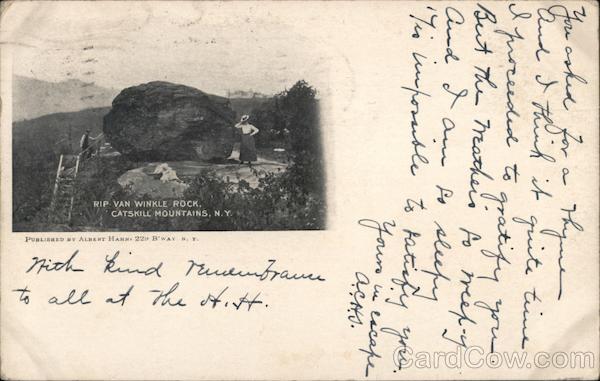 RIP VAN WINKLE ROCK,
CATSKILL MOUNTAINS, N.Y.
PUBLISHED BY ALBERT HAHN, 229 B'WAY. N. Y.
With kind remembrance
to all at the H.H.
You asked for a rhyme
And I think it quite time
I proceeded to gratify you.
But the weather's so weep-y
And I am so sleepy
'Tis impossible to satisfy you.
Yours in escape
A.C.H.S.
CardCow.com